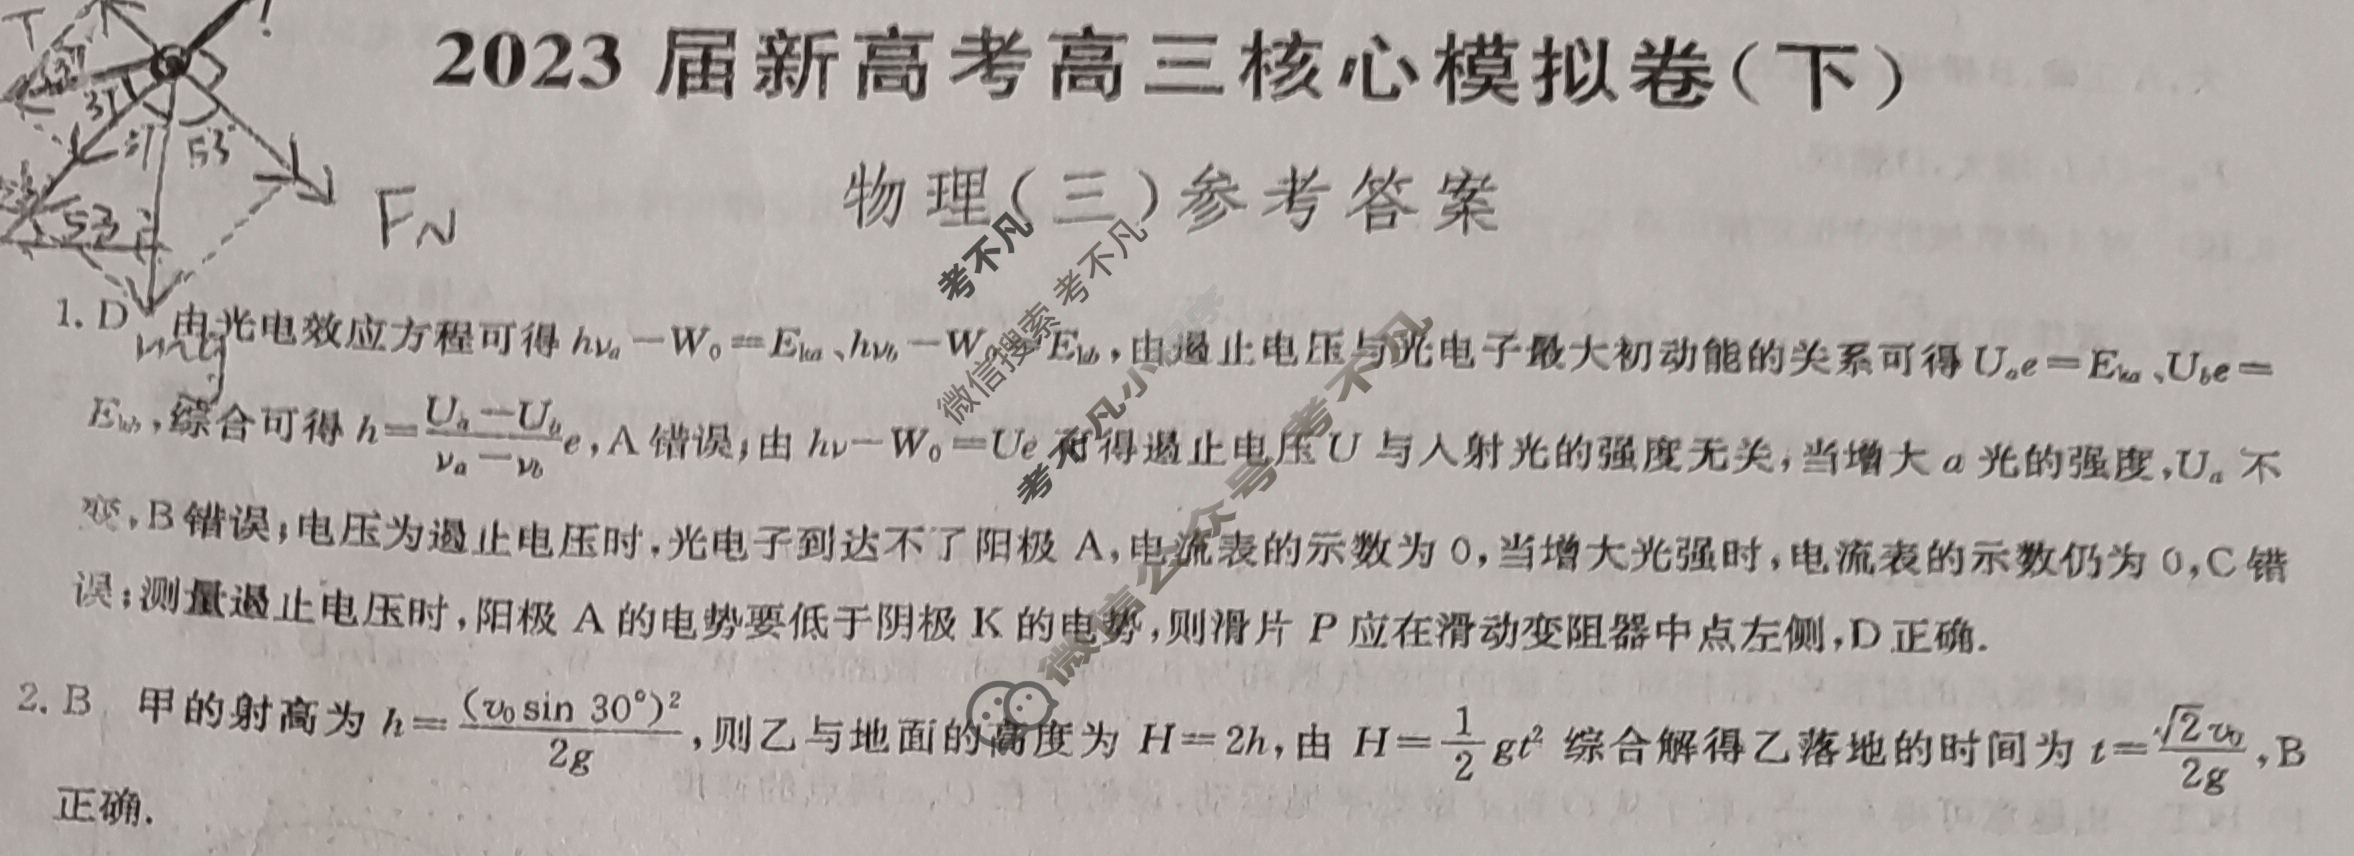 2023届新高考高三核心模拟卷(下)
物理(三)参考答案
T
37
37
53
53
F_N
mg
1. D 由光电效应方程可得 hν_a－W_0＝E_ka、hν_b－W_0＝E_kb，由遏止电压与光电子最大初动能的关系可得 U_a e＝E_ka、U_b e＝
E_kb，综合可得 h＝(U_a－U_b)/(ν_a－ν_b) e，A 错误；由 hν－W_0＝Ue 可得遏止电压 U 与入射光的强度无关，当增大 a 光的强度，U_a 不
变，B 错误；电压为遏止电压时，光电子到达不了阳极 A，电流表的示数为 0，当增大光强时，电流表的示数仍为 0，C 错
误；测量遏止电压时，阳极 A 的电势要低于阴极 K 的电势，则滑片 P 应在滑动变阻器中点左侧，D 正确.
2. B 甲的射高为 h＝(v_0 sin 30°)²/2g，则乙与地面的高度为 H＝2h，由 H＝1/2 gt² 综合解得乙落地的时间为 t＝√2v_0/2g，B
正确.
考不凡
微信搜索 考不凡
考不凡小
微信公众号 考不凡